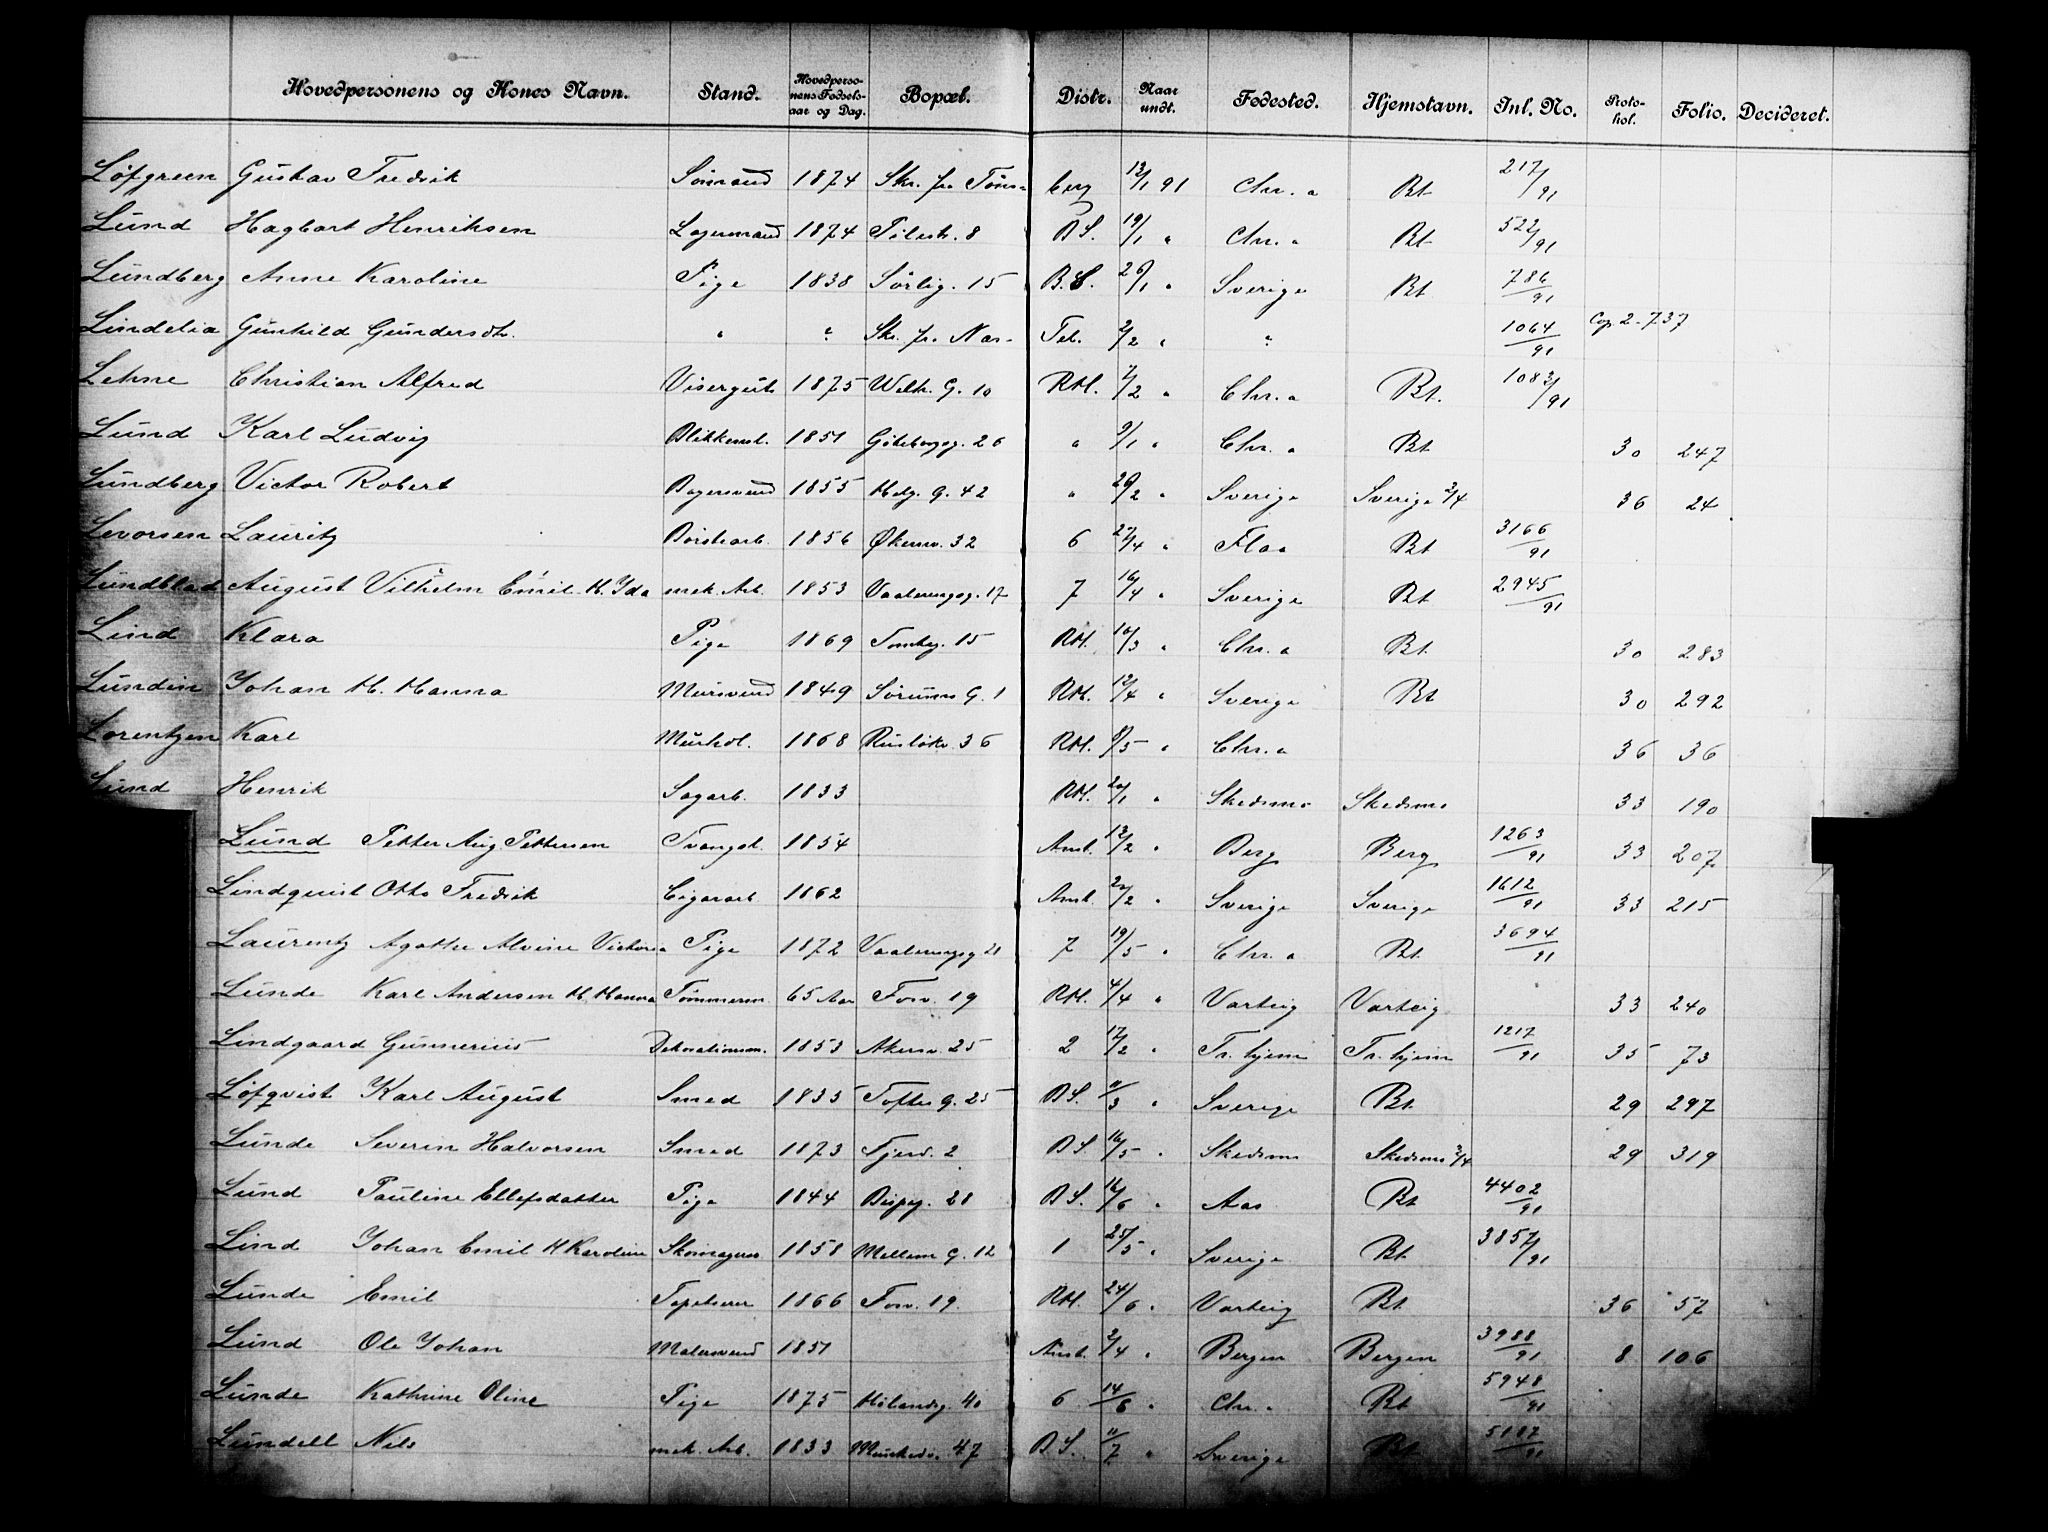 Hovedpersonens og Kones Navn. Stand. Hovedpersonens Fødselsaar og Dag. Bopæl. Distr. Naar undt. Fødested. Hjemstavn. Inl. No. Protokol. Folio. Decideret.
Løfgreen Gustav Fredrik Sømand 1874 Skr. fra Tøns- berg 12/1 91 Chr.a Bt 217/91
Lund Hagbart Henriksen Lagermand 1874 8 B.S. 19/1 " Chr.a Bt 522/91
Lundberg Anne Karoline Pige 1838 Sørlig. 15 B.S. 26/1 " Sverige Bt 786/91
Lindelia Gunhild Gundersdtr. " " Skr. fra Næs- Tel. 2/2 " " 1064/91 Cop 2-737
Lehne Christian Alfred Visergut 1875 Welh. G. 10 RM. 2/2 " Chr.a Bt. 1083/91
Lund Karl Ludvig Blikkensl. 1851 Göteborgg. 26 " 9/1 " Chr.a Bt 30 247
Lundberg Victor Robert Bagersvend 1855 Helg. G. 42 " 26/2 " Sverige Sverige 2/4 36 24
Levorsen Lauritz Børstearb. 1856 Økernv. 32 6 27/4 " Flaa Bt 3166/91
Lundblad August Vilhelm Emil H. Ida mek. Arb. 1853 Vaalerengg. 17 7 16/4 " Sverige Bt 2945/91
Lind Klara Pige 1869 Tomteg. 15 RM. 10/3 " Chr.a Bt. 30 283
Lundin Johan H. Hanna Mursvend 1849 Sørums G. 1 RM. 12/4 " Sverige Bt 30 292
Lorentzen Karl Murhdl. 1868 Ruseløkv. 36 RM. 8/5 " Chr.a 36 36
Lund Henrik Sagarb. 1833 RM. 20/1 " Skedsmo Skedsmo 33 190
Lund Petter Aug. Pettersen Tvangsl. 1854 Anst. 13/2 " Berg Berg 1263/91 33 207
Lindquist Otto Fredrik Cigararb. 1862 Anst. 22/2 " Sverige Sverige 1612/91 33 215
Laurentz Agathe Alvine Victoria Pige 1872 Vaalerengg 21 7 19/5 " Chr.a Bt. 3694/91
Lunde Karl Andersen H. Hanna Tømmerm. 65 Aar Fosv. 19 RM. 4/4 " Varteig Varteig 33 240
Lindgaard Gunnerius Dekorationsm. 1853 Akersv. 25 2 17/2 " Tr.hjem Tr.hjem 1217/91 35 73
Løfqvist Karl August Smed 1835 Tofte G. 25 B.S. 11/3 " Sverige Bt. 29 297
Lunde Severin Halvorsen Smed 1873 Fjerd. 2 B.S. 16/5 " Skedsmo Skedsmo 2/4 29 319
Lund Pauline Ellefsdatter Pige 1844 Bispg. 28 B.S. 16/6 " Aas Bt 4402/91
Lind Johan Emil H Karoline Skomager 1858 Mellem G. 12 1 25/5 " Sverige Bt. 3857/91
Lunde Emil Tapetserer 1866 Fosv. 19. RM. 24/6 " Varteig Bt 36 57
Lund Ole Johan Malersvend 1851 Anst. 2/4 " Bergen Bergen 3988/91 8 106
Lunde Kathrine Oline Pige 1875 Hølandsg. 40 6 14/8 " Chr.a Bt 5948/91
Lundell Nils mek. Arb. 1833 Munkedv. 47 B.S. 11/7 " Sverige Bt 5187/91